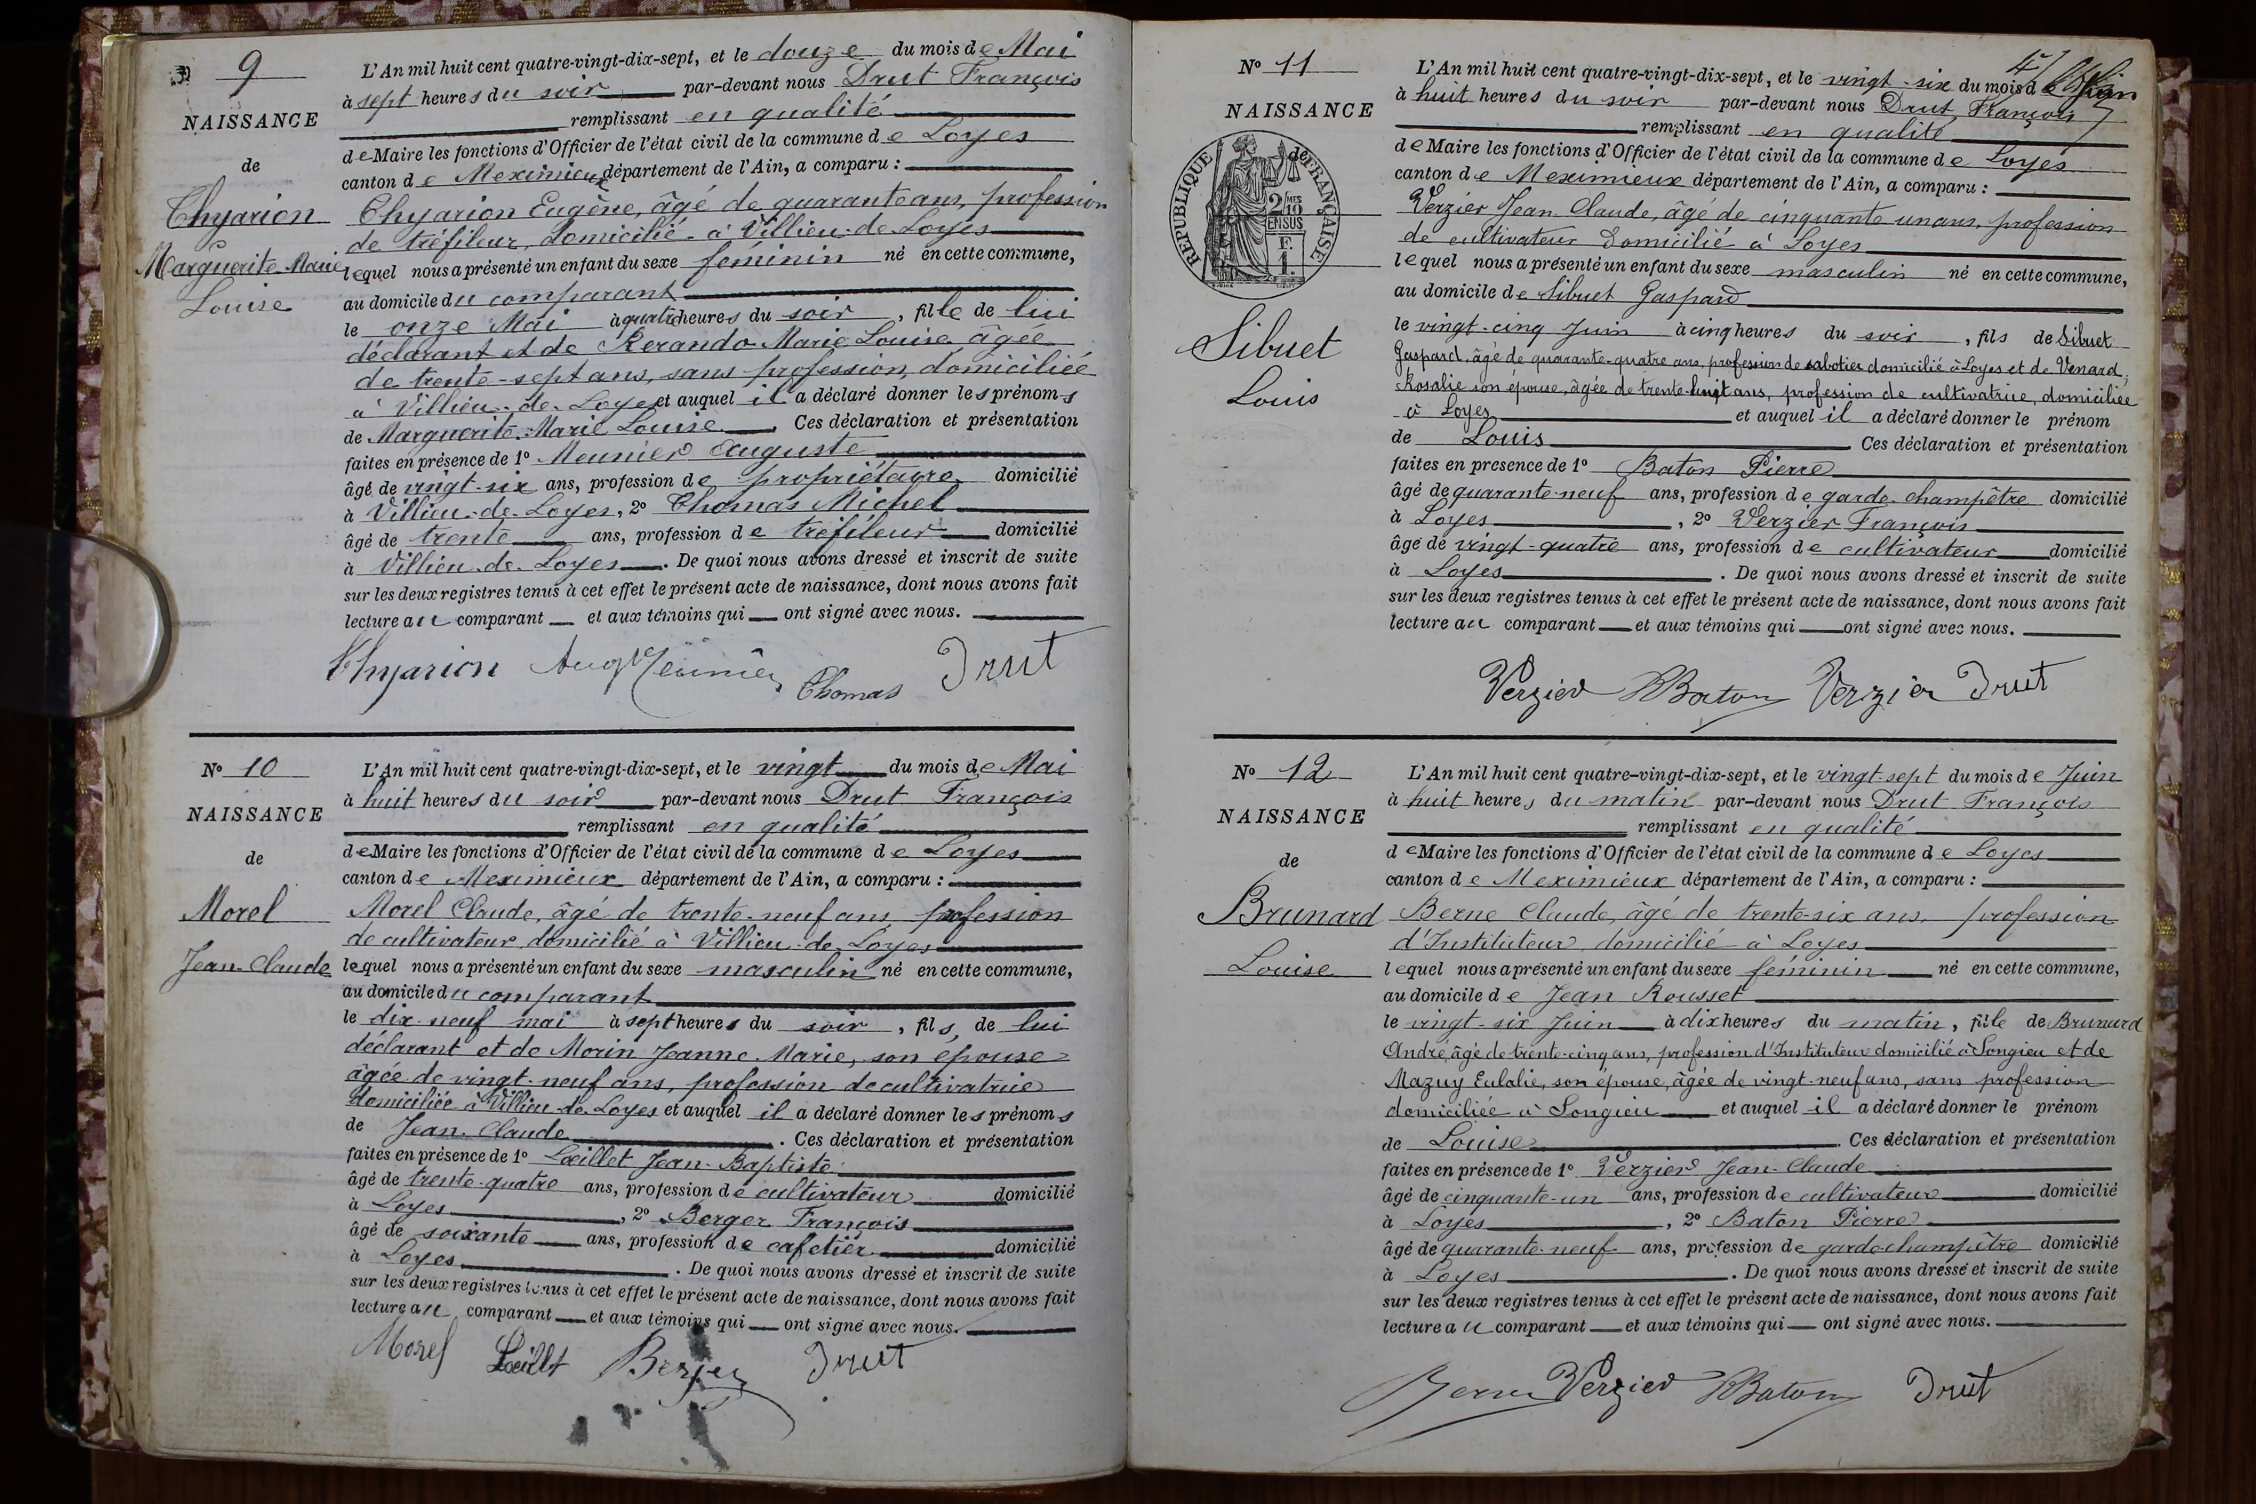 9
NAISSANCE
de
Thyarion
Marguerite Marie
Louise
L'An mil huit cent quatre-vingt-dix-sept, et le douze du mois de Mai
à sept heures du soir par-devant nous Drut François
remplissant en qualité
de Maire les fonctions d'Officier de l'état civil de la commune de Loyes
canton de Meximieux département de l'Ain, a comparu :
Thyarion Eugène, âgé de quarante ans, profession
de tréfileur, domicilié à Villieu-de-Loyes
lequel nous a présenté un enfant du sexe féminin né en cette commune,
au domicile du comparant
le onze Mai à quatre heures du soir, fille de lui
déclarant et de Kerando Marie Louise âgée
de trente-sept ans, sans profession, domiciliée
à Villieu-de-Loyes et auquel il a déclaré donner les prénoms
de Marguerite Marie Louise. Ces déclaration et présentation
faites en présence de 1º Meunier Auguste
âgé de vingt-six ans, profession de propriétaire domicilié
à Villieu-de-Loyes, 2º Thomas Michel
âgé de trente ans, profession de tréfileur domicilié
à Villieu-de-Loyes. De quoi nous avons dressé et inscrit de suite
sur les deux registres tenus à cet effet le présent acte de naissance, dont nous avons fait
lecture au comparant et aux témoins qui ont signé avec nous.
Thyarion Aug Meunier Thomas Drut
Nº 10
NAISSANCE
de
Morel
Jean-Claude
L'An mil huit cent quatre-vingt-dix-sept, et le vingt du mois de Mai
à huit heures du soir par-devant nous Drut François
remplissant en qualité
de Maire les fonctions d'Officier de l'état civil de la commune de Loyes
canton de Meximieux département de l'Ain, a comparu :
Morel Claude, âgé de trente-neuf ans, profession
de cultivateur, domicilié à Villieu-de-Loyes
lequel nous a présenté un enfant du sexe masculin né en cette commune,
au domicile du comparant
le dix-neuf mai à sept heures du soir, fils, de lui
déclarant et de Morin Jeanne Marie, son épouse
âgée de vingt-neuf ans, profession de cultivatrice
domiciliée à Villieu-de-Loyes et auquel il a déclaré donner les prénoms
de Jean-Claude. Ces déclaration et présentation
faites en présence de 1º Lœillet Jean-Baptiste
âgé de trente-quatre ans, profession de cultivateur domicilié
à Loyes, 2º Berger François
âgé de soixante ans, profession de cafetier domicilié
à Loyes. De quoi nous avons dressé et inscrit de suite
sur les deux registres tenus à cet effet le présent acte de naissance, dont nous avons fait
lecture au comparant et aux témoins qui ont signé avec nous.
Morel Lœillet Berger Drut
Nº 11
NAISSANCE
RÉPUBLIQUE FRANÇAISE
2 MES 10
EN SUS
F. 1.
Sibuet
Louis
L'An mil huit cent quatre-vingt-dix-sept, et le vingt-six du mois de Juin
à huit heures du soir par-devant nous Drut François
remplissant en qualité
de Maire les fonctions d'Officier de l'état civil de la commune de Loyes
canton de Meximieux département de l'Ain, a comparu :
Verzier Jean-Claude, âgé de cinquante un ans, profession
de cultivateur domicilié à Loyes
lequel nous a présenté un enfant du sexe masculin né en cette commune,
au domicile de Sibuet Gaspard
le vingt-cinq Juin à cinq heures du soir, fils de Sibuet
Gaspard, âgé de quarante-quatre ans, profession de sabotier domicilié à Loyes et de Venard
Rosalie son épouse, âgée de trente-huit ans, profession de cultivatrice, domiciliée
à Loyes et auquel il a déclaré donner le prénom
de Louis Ces déclaration et présentation
faites en présence de 1º Baton Pierre
âgé de quarante-neuf ans, profession de garde-champêtre domicilié
à Loyes, 2º Verzier François
âgé de vingt-quatre ans, profession de cultivateur domicilié
à Loyes. De quoi nous avons dressé et inscrit de suite
sur les deux registres tenus à cet effet le présent acte de naissance, dont nous avons fait
lecture au comparant et aux témoins qui ont signé avec nous.
Verzier Baton Verzier Drut
Nº 12
NAISSANCE
de
Brunard
Louise
L'An mil huit cent quatre-vingt-dix-sept, et le vingt-sept du mois de Juin
à huit heures du matin par-devant nous Drut François
remplissant en qualité
de Maire les fonctions d'Officier de l'état civil de la commune de Loyes
canton de Meximieux département de l'Ain, a comparu :
Berne Claude, âgé de trente-six ans, profession
d'Instituteur, domicilié à Loyes
lequel nous a présenté un enfant du sexe féminin né en cette commune,
au domicile de Jean Rousset
le vingt-six Juin à dix heures du matin, fille de Brunard
André, âgé de trente-cinq ans, profession d'Instituteur domicilié à Songieu et de
Mazuy Eulalie, son épouse, âgée de vingt-neuf ans, sans profession
domiciliée à Songieu et auquel il a déclaré donner le prénom
de Louise. Ces déclaration et présentation
faites en présence de 1º Verzier Jean-Claude
âgé de cinquante-un ans, profession de cultivateur domicilié
à Loyes, 2º Baton Pierre
âgé de quarante-neuf ans, profession de garde champêtre domicilié
à Loyes. De quoi nous avons dressé et inscrit de suite
sur les deux registres tenus à cet effet le présent acte de naissance, dont nous avons fait
lecture au comparant et aux témoins qui ont signé avec nous.
Berne Verzier Baton Drut